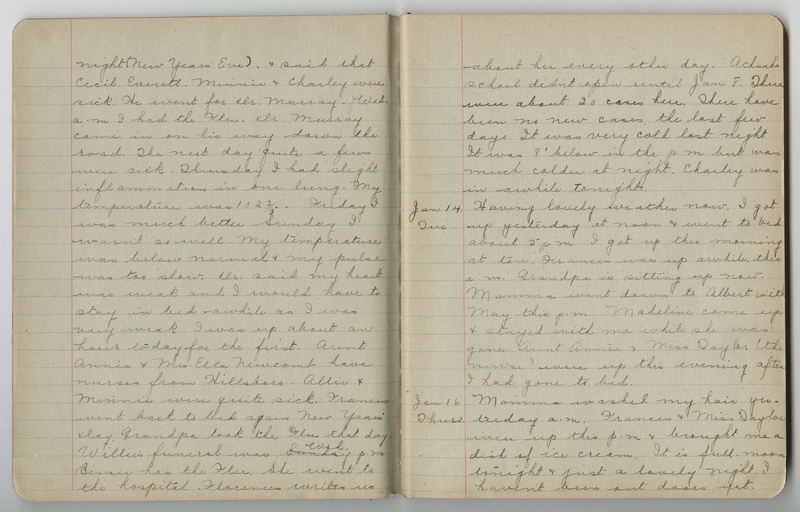 night (New Years Eve). & said that
Cecil Everett. Minnie & Charley were
sick. He went for Dr. Murray. Wed.
a.m I had the Flu. Dr. Murray
came in on his way down the
road. The next day quite a few
were sick. Thursday I had slight
inflammation in one lung. My
temperature was 102 2/5. Friday I
was much better Sunday I
wasn't so well. My temperature
was below normal & my pulse
was too slow. Dr. said my heart
was weak and I would have to
stay in bed awhile as I was
very weak I was up about an
hour to-day for the first. Aunt
Annie & Mrs. Ella Newcomb have
nurses from Hillsboro. Allie &
Minnie were quite sick. Frances
went back to bed again New Years'
day. Grandpa took the Flu that day.
Willie's funeral was Sunday Wed. p.m
Bessie has the Flu. She went to
the hospital. Florence writes us
about her every other day.
school didn't open until Jan 8. There
were about 20 cases here. There have
been no new cases the last few
days. It was very cold last night
It was 8° below in the p.m but was
much colder at night. Charley was
in awhile tonight.
Jan 14 Having lovely weather now. I got
Tue. up yesterday at noon & went to bed
about 5 p m I got up this morning
at ten. Frances was up awhile this
a m. Grandpa is sitting up now.
Mamma went down to Albert with
May this p.m. Madeline came up
& stayed with me while she was
gone Aunt Annie & Miss Taylor (the
nurse) were up this evening after
I had gone to bed.
Jan 16 Mamma washed my hair yes-
Thurs. terday a.m. Frances & Miss Taylor
were up this p.m & brought me a
dish of ice cream. It is full moon
tonight & just a lovely night. I
haven't been out doors yet.